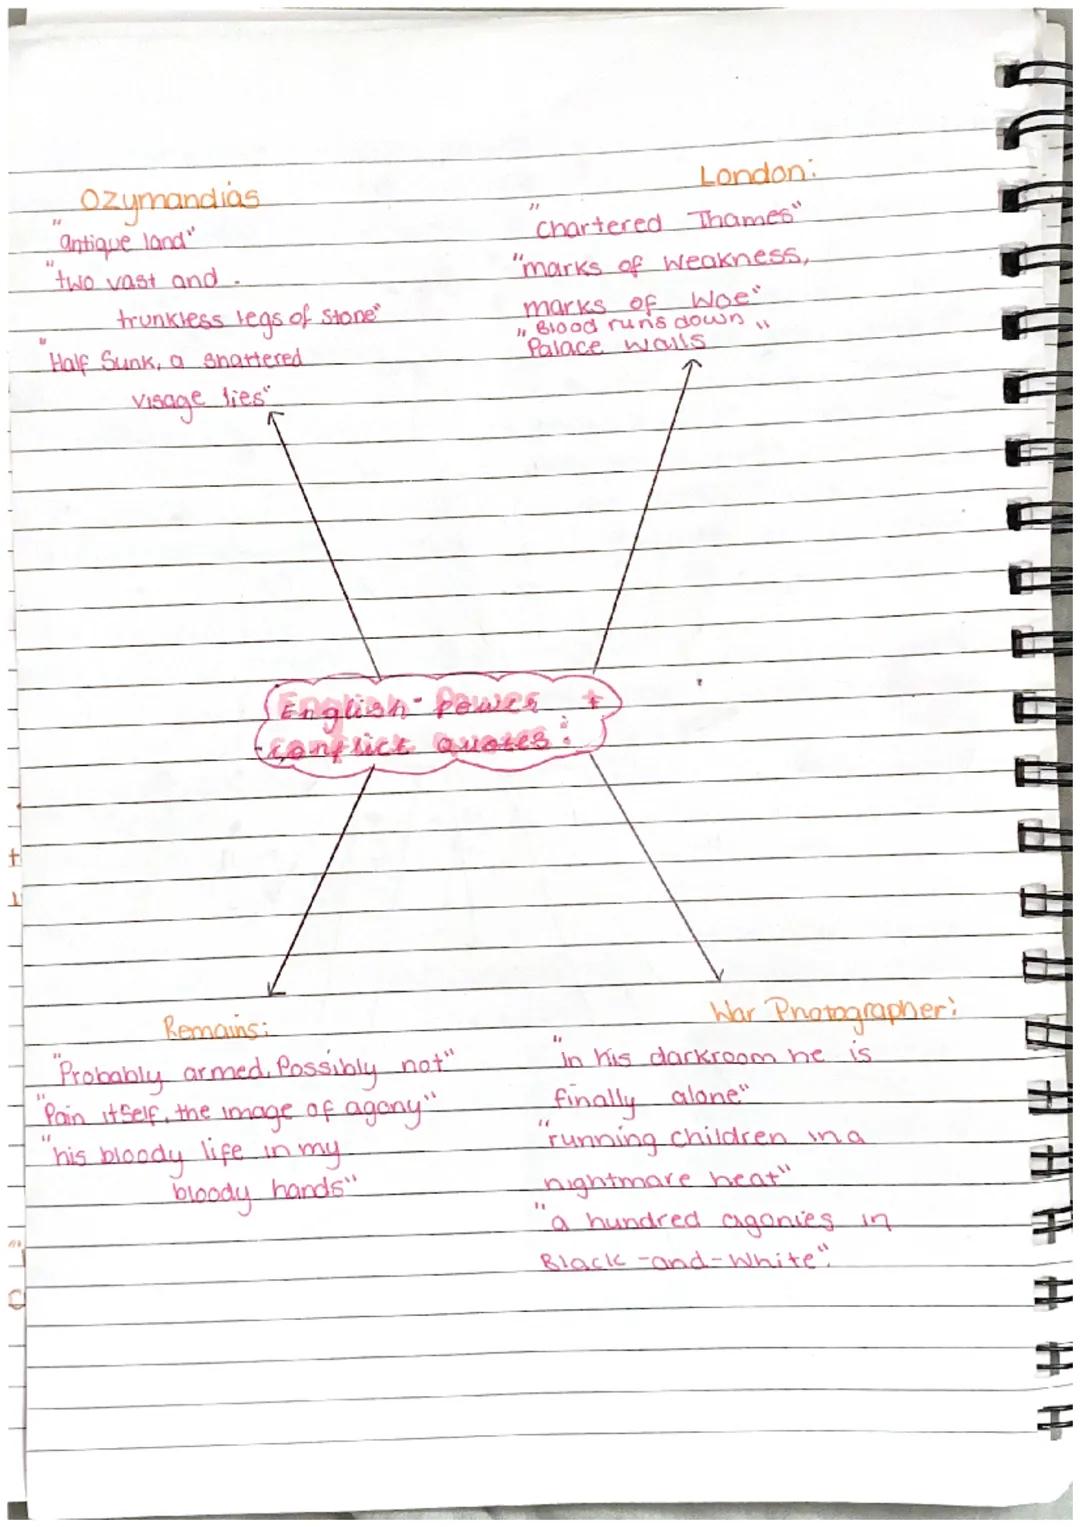 Ozymandias
"antique land"
"two vast and
trunkless legs of stone"
"Half Sunk, a shattered
visage lies"
London:
"Chartered Thames"
"marks of weakness,
marks of Woe"
"Blood runs down
Palace walls"
English - Power +
conflict quotes:
Remains:
"Probably armed, Possibly not"
"Pain itself, the image of agony"
"his bloody life in my
bloody hands"
War Photographer:
"In his darkroom he is
finally alone"
"running children in a
nightmare heat"
"a hundred agonies in
Black-and-white".